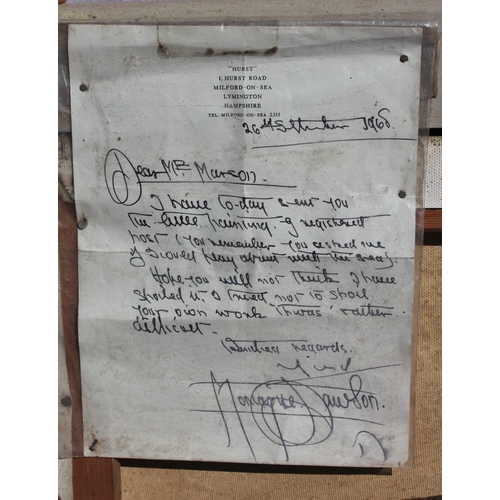 "HURST"
1, HURST ROAD
MILFORD·ON·SEA
LYMINGTON
HAMPSHIRE
TEL: MILFORD·ON·SEA 2213
26th September 1968
Dear Mr Marson.
I have to-day sent you
the little painting - by registered
post (you remember you asked me
if I could play about with the sea).
Hope you will not think I have
spoiled it. I tried not to spoil
your own work. 'twas' rather
difficult.
Kindest regards.
Montague Dawson.